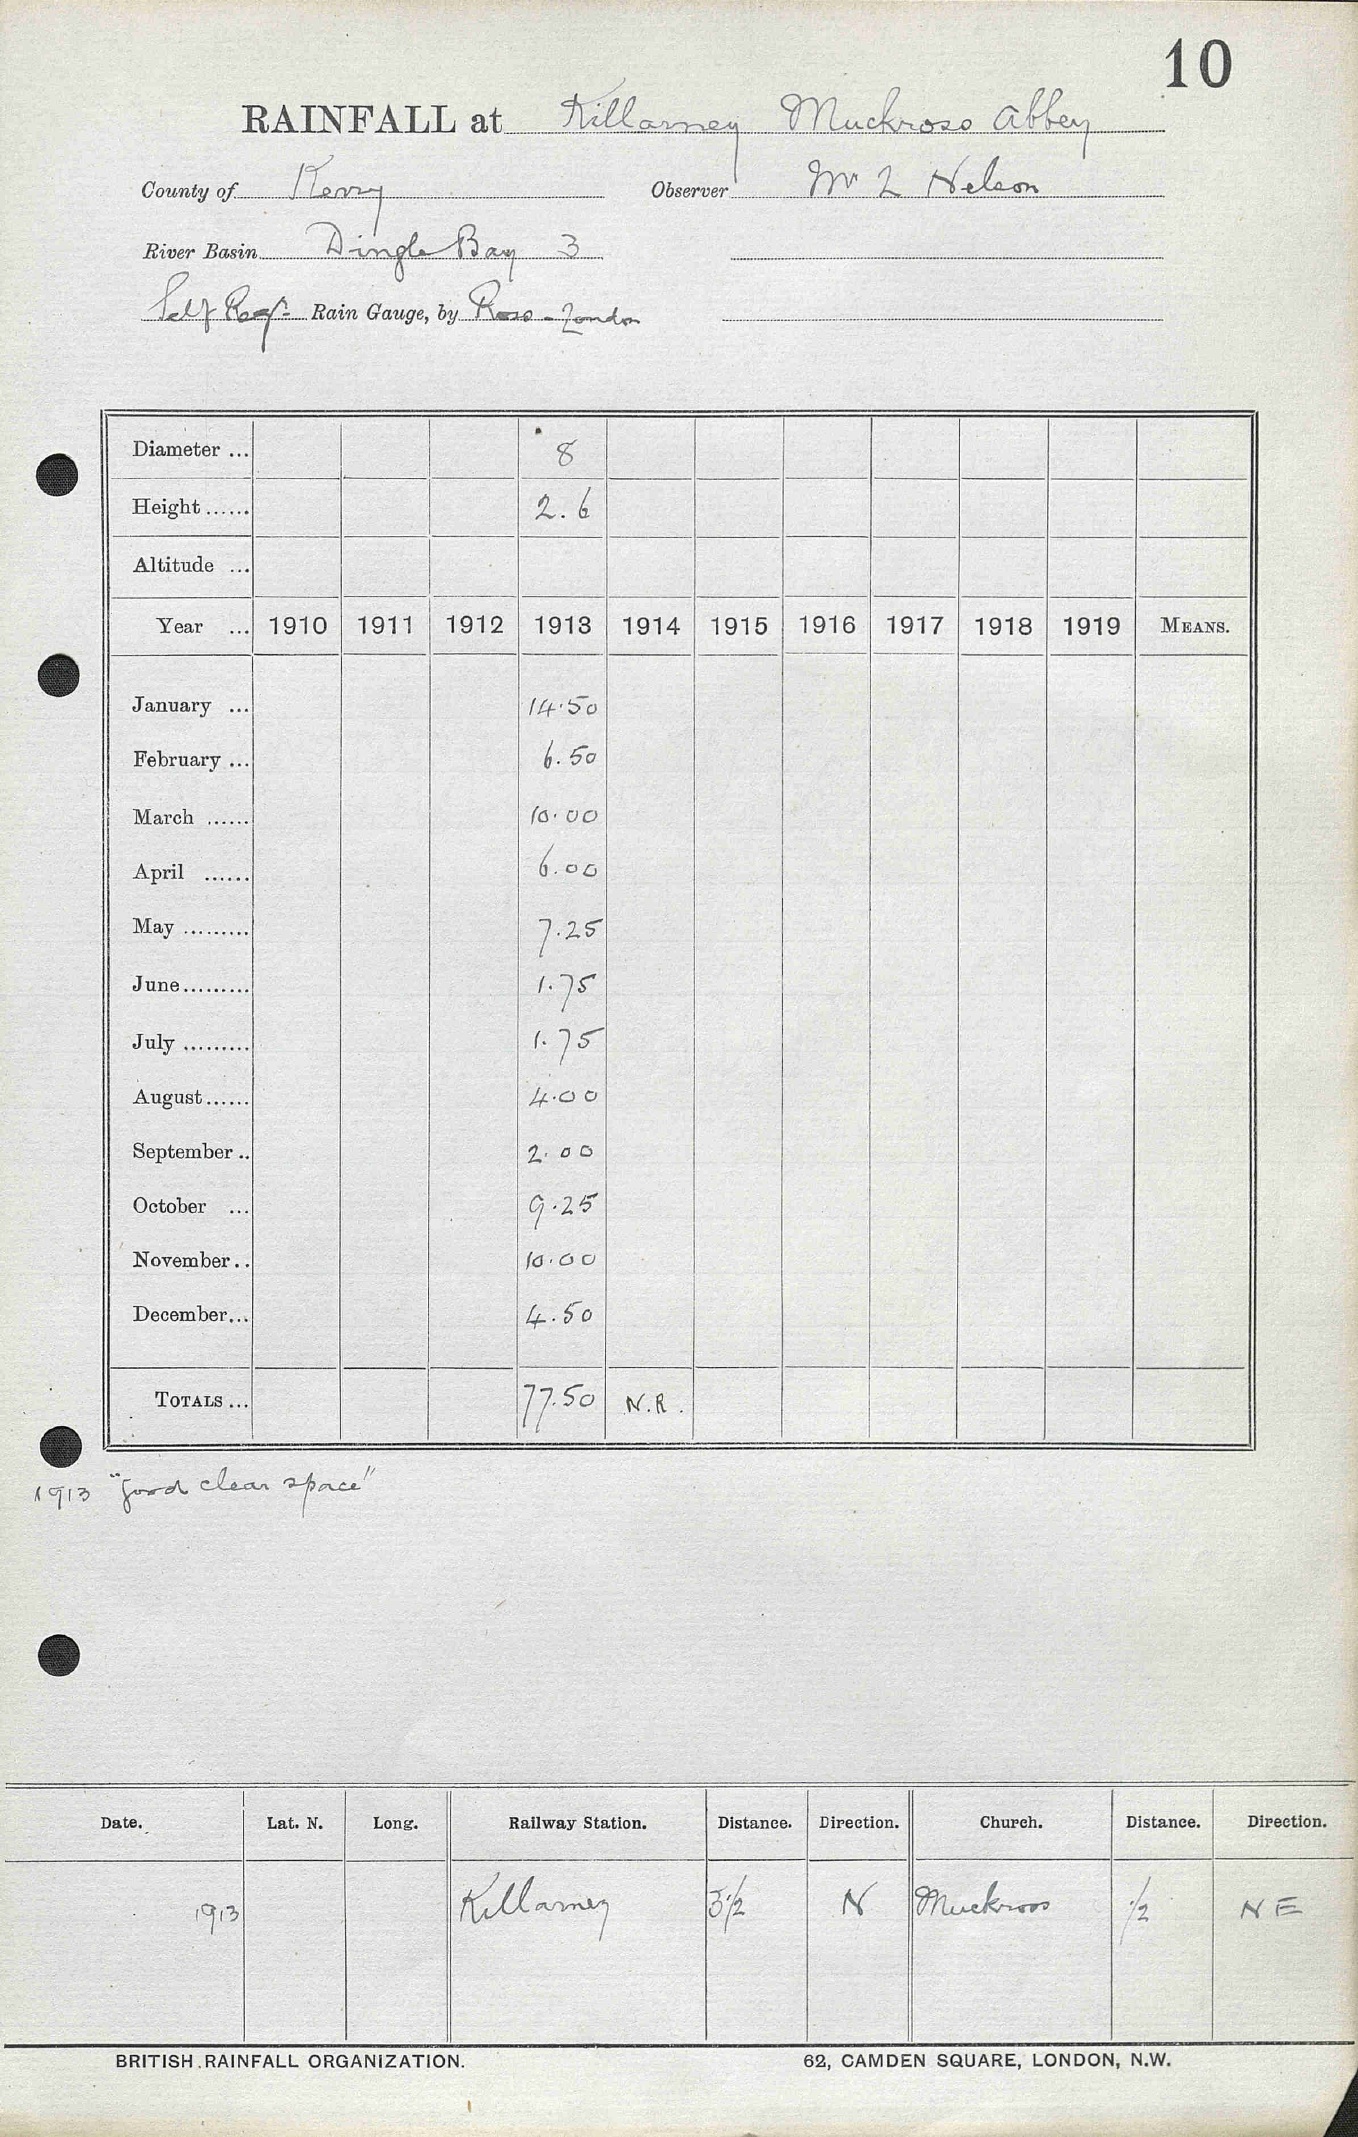 10
RAINFALL at Killarney Muckross Abbey
County of Kerry Observer Mr L Nelson
River Basin Dingle Bay 3
Self Regr. Rain Gauge, by Ross - London
Diameter ... 8
Height ...... 2.6
Altitude ...
Year ... 1910 1911 1912 1913 1914 1915 1916 1917 1918 1919 MEANS.
January ... 14.50
February ... 6.50
March ...... 10.00
April ...... 6.00
May ......... 7.25
June ......... 1.75
July ......... 1.75
August ...... 4.00
September .. 2.00
October ... 9.25
November .. 10.00
December ... 4.50
TOTALS ... 77.50 N.R.
1913 "good clear space"
Date. Lat. N. Long. Railway Station. Distance. Direction. Church. Distance. Direction.
1913 Killarney 3 1/2 N Muckross 1/2 NE
BRITISH RAINFALL ORGANIZATION. 62, CAMDEN SQUARE, LONDON, N.W.